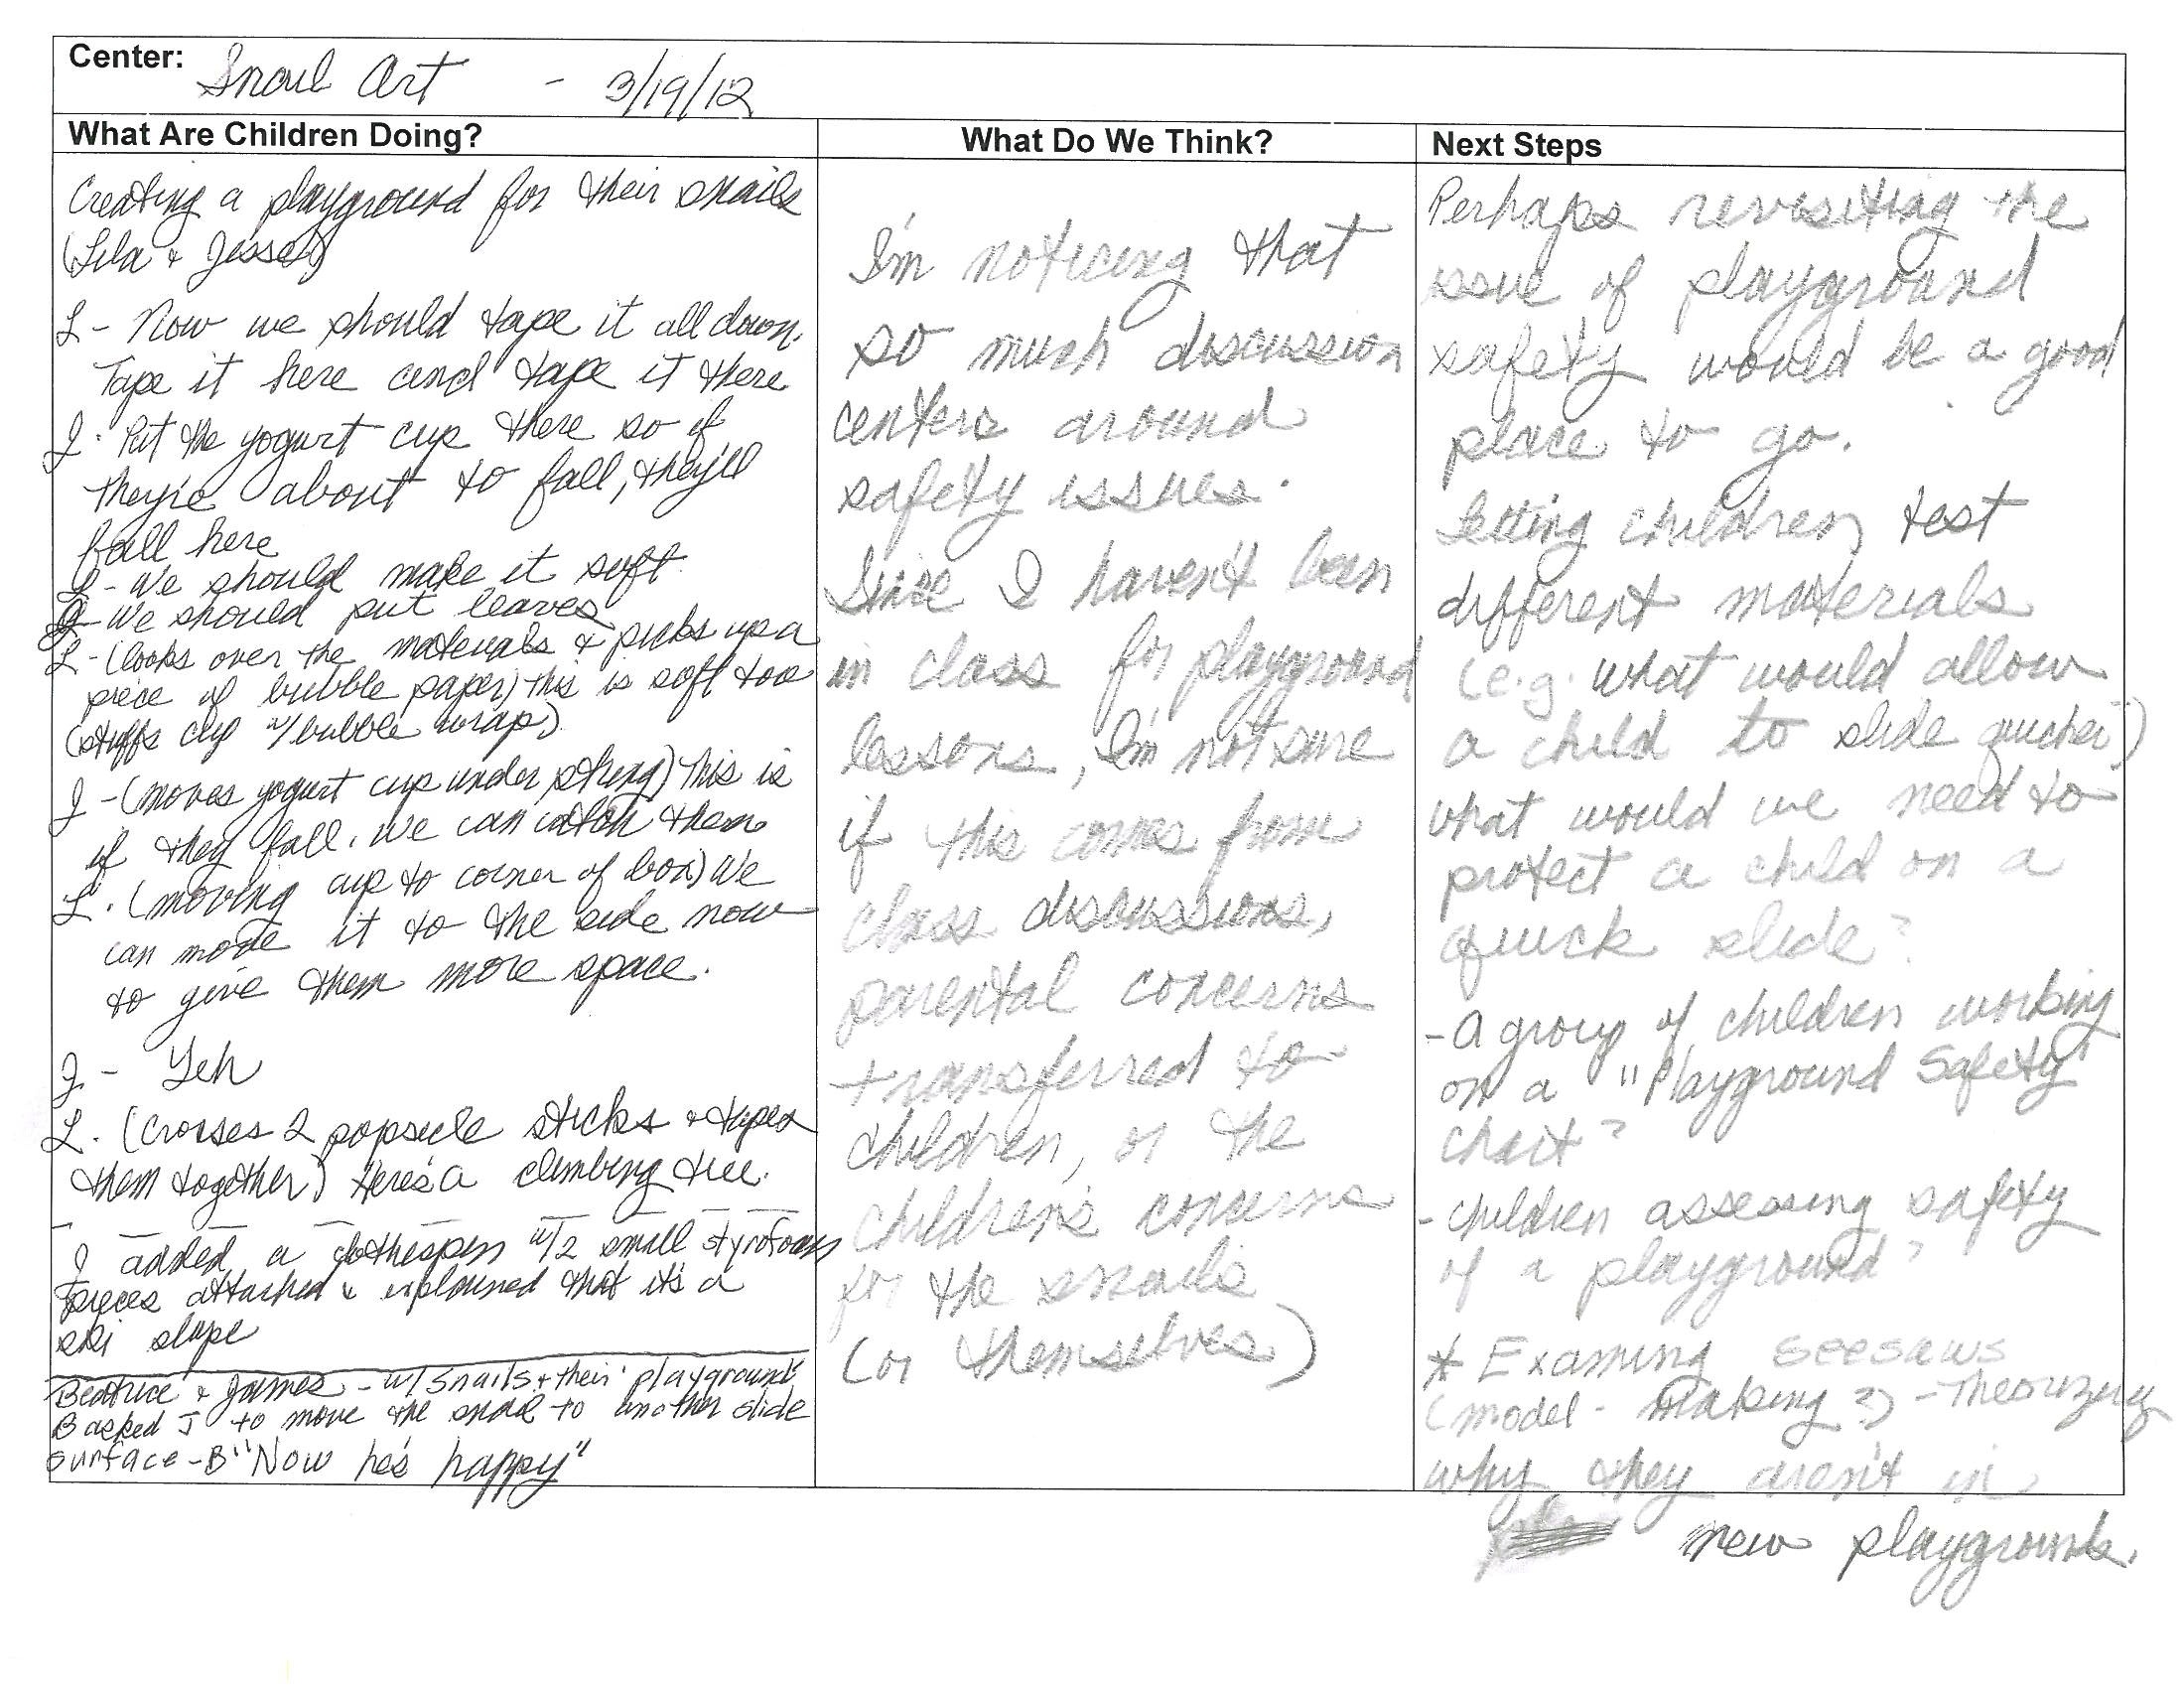 Center: Snail Art - 3/19/12
What Are Children Doing?
Creating a playground for their snails
(Lila & Jesse)
L - Now we should tape it all down.
Tape it here and tape it there
J - Put the yogurt cup there so if
they're about to fall, they'll
fall here
L - We should make it soft.
J - We should put leaves
L - (looks over the materials & picks up a
piece of bubble paper) this is soft too
(stuffs cup w/ bubble wrap)
J - (moves yogurt cup under string) This is
if they fall. We can catch them
L. (moving cup to corner of box) We
can move it to the side now
to give them more space.
J - Yeh
L. (Crosses 2 popsicle sticks & tapes
them together) Here's a climbing tree.
J added a clothespin w/2 small styrofoam
pieces attached & explained that it's a
ski slope
Beatrice & James - w/ snails & their playground
B asked J to move the snail to another slide
surface - B "Now he's happy"
What Do We Think?
I'm noticing that
so much discussion
centers around
safety issues.
Since I haven't been
in class for playground
lessons, I'm not sure
if this comes from
class discussions,
parental concerns
transferred to
children, or the
children's concerns
for the snails
(or themselves)
Next Steps
Perhaps revisiting the
issue of playground
safety would be a good
place to go.
Letting children test
different materials
(e.g. what would allow
a child to slide quicker)
what would we need to
protect a child on a
quick slide?
- A group of children working
on a "Playground Safety"
chart?
- children assessing safety
of a playground?
* Examing seesaws
(model-making?) - Theorizing
why they aren't in
new playgrounds.